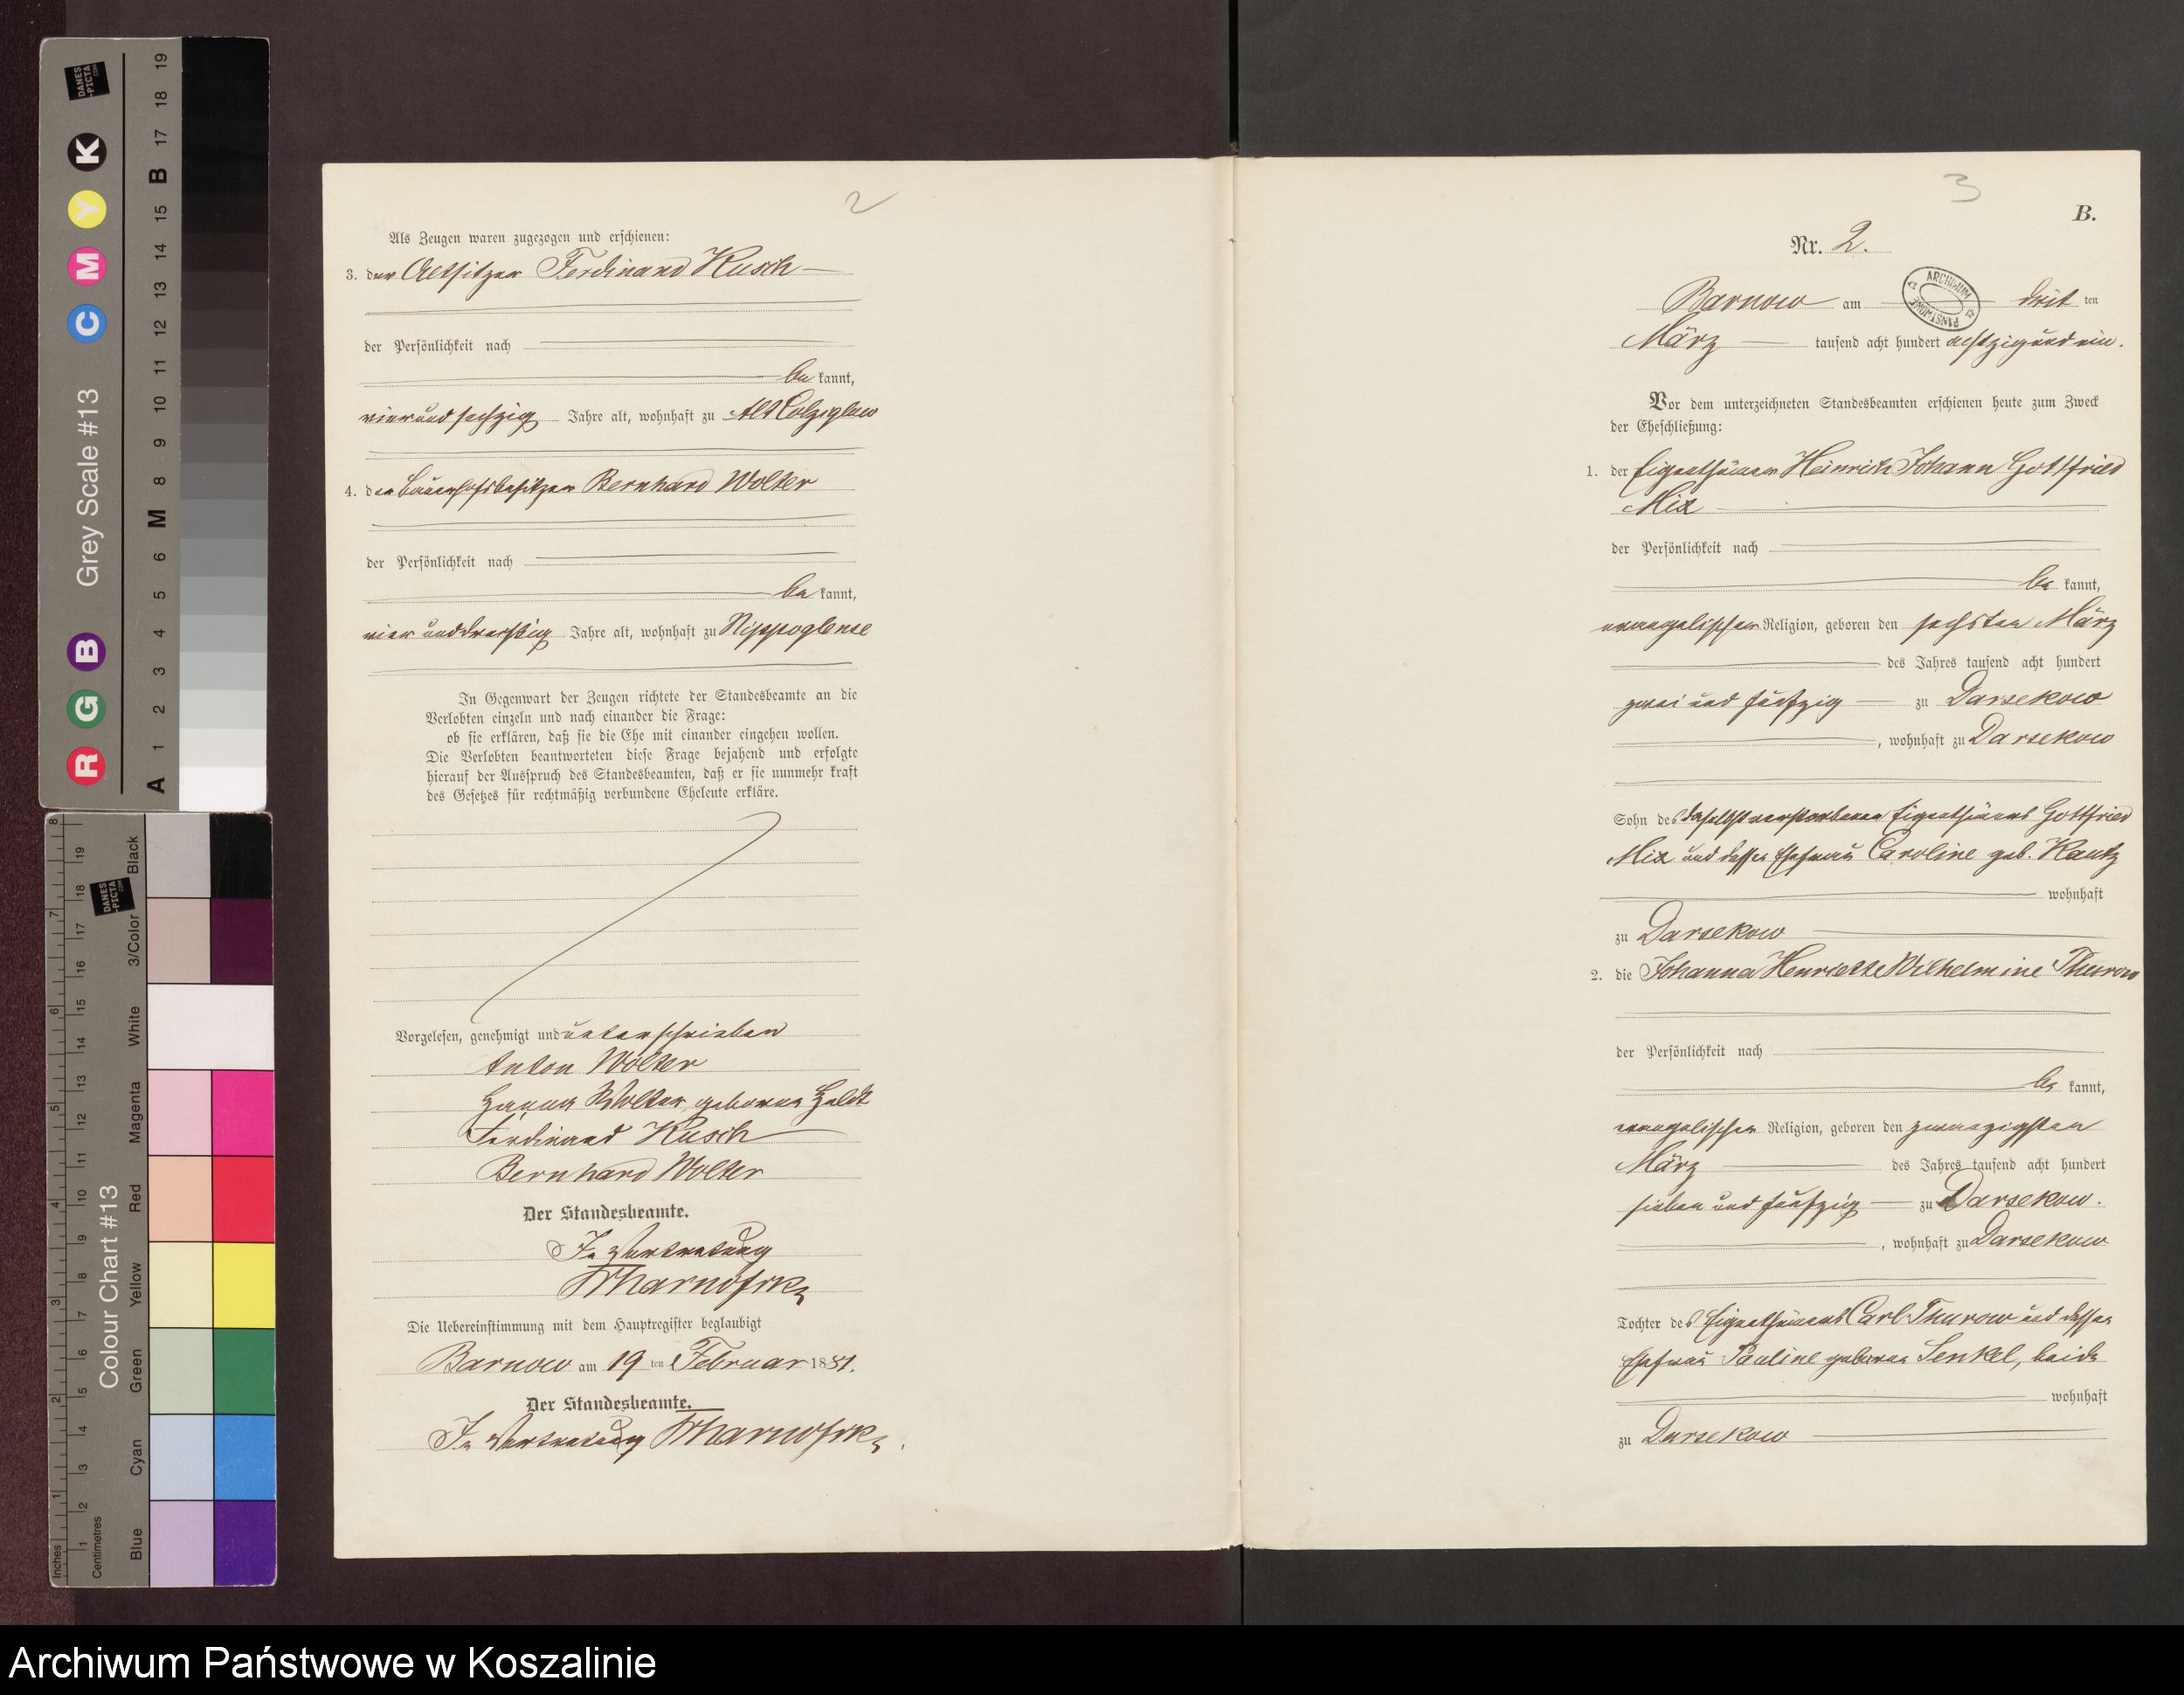 2
Als Zeugen waren zugezogen und erschienen:
3. der Altsitzer Ferdinand Kusch
der Persönlichkeit nach
bekannt,
vier und sechzig Jahre alt, wohnhaft zu Alt Colziglow
4. der Bauerhofsbesitzer Bernhard Wolter
der Persönlichkeit nach
bekannt,
vier und dreißig Jahre alt, wohnhaft zu Nippoglense
In Gegenwart der Zeugen richtete der Standesbeamte an die
Verlobten einzeln und nach einander die Frage:
ob sie erklären, daß sie die Ehe mit einander eingehen wollen.
Die Verlobten beantworteten diese Frage bejahend und erfolgte
hierauf der Ausspruch des Standesbeamten, daß er sie nunmehr kraft
des Gesetzes für rechtmäßig verbundene Eheleute erkläre.
Vorgelesen, genehmigt und unterschrieben
Anton Wolter
Hanna Wolter geborne Heldt
Ferdinand Kusch
Bernhard Wolter
Der Standesbeamte.
In Vertretung
Die Uebereinstimmung mit dem Hauptregister beglaubigt
Barnow am 19 ten Februar 1881.
Der Standesbeamte.
In Vertretung
3
B.
Nr. 2.
ARCHIWUM PAŃSTWOWE
Barnow am dritten
März tausend acht hundert achtzig und ein.
Vor dem unterzeichneten Standesbeamten erschienen heute zum Zweck
der Eheschließung:
1. der Eigenthümer Heinrich Johann Gottfried
Mix
der Persönlichkeit nach
bekannt,
evangelischer Religion, geboren den sechsten März
des Jahres tausend acht hundert
zwei und fünfzig zu Darsekow
, wohnhaft zu Darsekow
Sohn des daselbst verstorbenen Eigenthümers Gottfried
Mix und dessen Ehefrau Caroline geb. Kautz
wohnhaft
zu Darsekow
2. die Johanna Henriette Wilhelmine Thurow
der Persönlichkeit nach
bekannt,
evangelischer Religion, geboren den zwanzigsten
März des Jahres tausend acht hundert
sieben und fünfzig zu Darsekow.
, wohnhaft zu Darsekow
Tochter des Eigenthümers Carl Thurow und dessen
Ehefrau Pauline geborne Senkel, beide
wohnhaft
zu Darsekow
DANES-PICTA.COM
Grey Scale #13
R G B C M Y K
A 1 2 3 4 5 6 M 8 9 10 11 12 13 14 15 B 17 18 19
DANES-PICTA.COM
Colour Chart #13
Blue Cyan Green Yellow Red Magenta White 3/Color Black
Inches 1 2 3 4 5 6 7 8
Centimetres 1 2 3 4 5 6 7 8 9 10 11 12 13 14 15 16 17 18 19
Archiwum Państwowe w Koszalinie